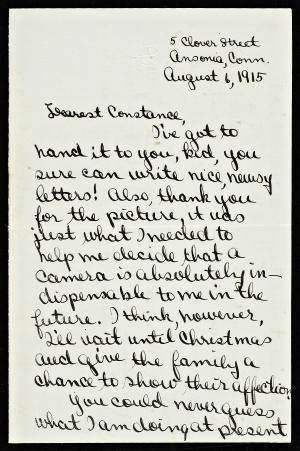 5 Clover Street
Ansonia, Conn.
August 6, 1915
Dearest Constance,
I've got to
hand it to you, kid, you
sure can write nice, newsy
letters! Also, thank you
for the picture, it was
just what I needed to
help me decide that a
camera is absolutely in-
dispensable to me in the
future. I think, however,
I'll wait until Christmas
and give the family a
chance to show their affection.
You could never guess
what I am doing at present